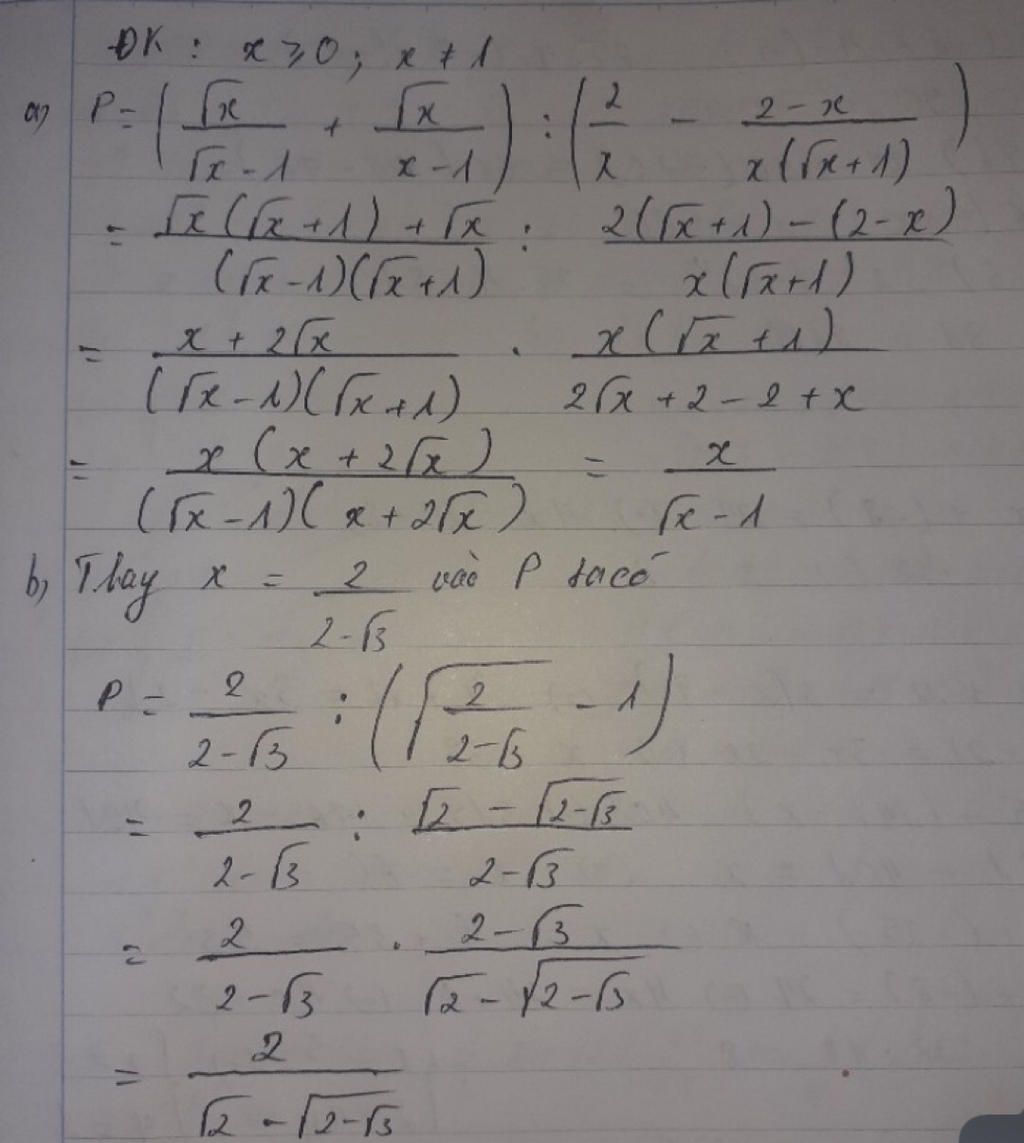 ĐK : x ≥ 0 ; x ≠ 1
a) P = (√x/(√x - 1) + √x/(x - 1)) : (2/x - (2 - x)/(x(√x + 1)))
= (√x(√x + 1) + √x)/((√x - 1)(√x + 1)) : (2(√x + 1) - (2 - x))/(x(√x + 1))
= (x + 2√x)/((√x - 1)(√x + 1)) . (x(√x + 1))/(2√x + 2 - 2 + x)
= (x(x + 2√x))/((√x - 1)(x + 2√x)) = x/(√x - 1)
b) Thay x = 2/(2 - √3) vào P ta có
P = 2/(2 - √3) : (√(2/(2 - √3)) - 1)
= 2/(2 - √3) : (√2 - √(2 - √3))/(2 - √3)
= 2/(2 - √3) . (2 - √3)/(√2 - √(2 - √3))
= 2/(√2 - √(2 - √3))